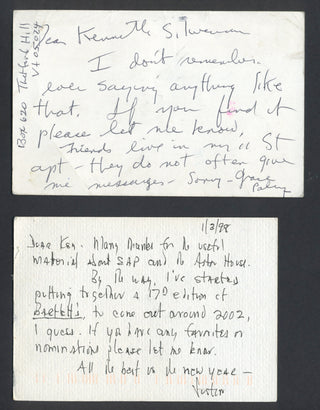 Box 620 Thetford Hill
Vt 05074
Dear Kenneth Silverman
I don't remember
ever saying anything like
that. If you find it
please let me know.
Friends live in my 11 St
apt - they do not often give
me messages - Sorry - Grace
Paley
1/3/98
Dear Ken, Many thanks for the useful
material about SAP and the Astor House.
By the way, I've started
putting together a 17th edition of
Bartlett's, to come out around 2002,
I guess. If you have any favorites or
nominations please let me know.
All the best in the new year -
Justin